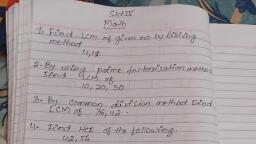 Std IV
Math
1. Find LCM of given no. by listing
method
4, 18
2. By using prime factorisation method
find LCM of
10, 20, 30
3. By common division method find
LCM of 36, 42.
4. Find HCF of the following.
42, 56